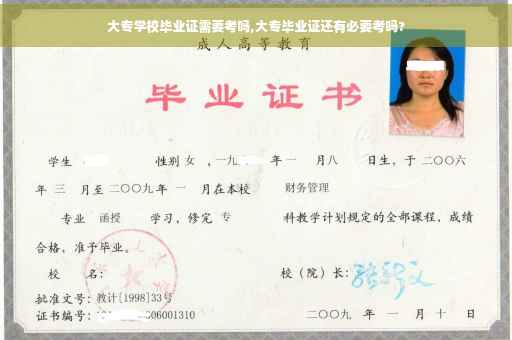 大专学校毕业证需要考吗,大专毕业证还有必要考吗?
成人高等教育
毕业证书
学生 性别 女 ，一九 年 一 月八 日生，于 二〇〇六
年 三 月至 二〇〇九 年 一 月在本校 财务管理
专业 函授 学习，修完 专 科教学计划规定的全部课程，成绩
合格，准予毕业。
校 名： 校（院）长：
批准文号：教计[1998]33号
证书编号： 06001310 二〇〇九 年 一 月 十 日